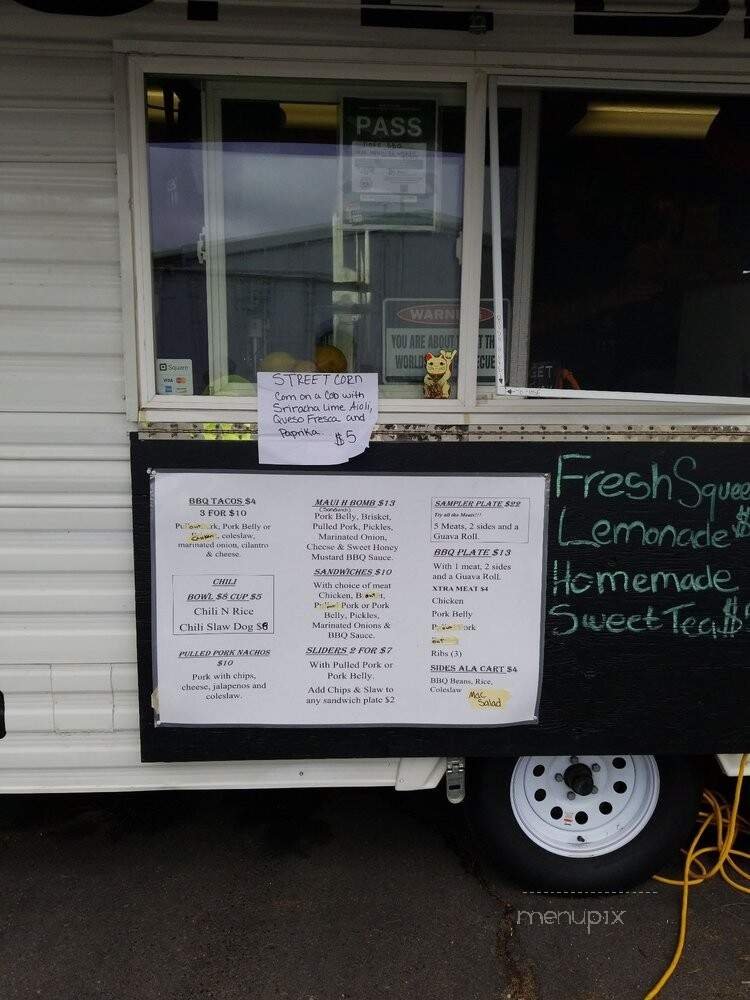 PASS
WARNING
YOU ARE ABOUT TH
WORLD CUE
Square
VISA
STREET CORN
Corn on a Cob with
Sriracha Lime Aioli,
Queso Fresca and
Paprika. $5
BBQ TACOS $4
3 FOR $10
Pork, Pork Belly or
Chicken, coleslaw,
marinated onion, cilantro
& cheese.
CHILI
BOWL $8 CUP $5
Chili N Rice
Chili Slaw Dog $6
PULLED PORK NACHOS
$10
Pork with chips,
cheese, jalapenos and
coleslaw.
MAUI H BOMB $13
(Sandwich)
Pork Belly, Brisket,
Pulled Pork, Pickles,
Marinated Onion,
Cheese & Sweet Honey
Mustard BBQ Sauce.
SANDWICHES $10
With choice of meat
Chicken,
Pork or Pork
Belly, Pickles,
Marinated Onions &
BBQ Sauce.
SLIDERS 2 FOR $7
With Pulled Pork or
Pork Belly.
Add Chips & Slaw to
any sandwich plate $2
SAMPLER PLATE $22
Try all the Meats!!!
5 Meats, 2 sides and a
Guava Roll.
BBQ PLATE $13
With 1 meat, 2 sides
and a Guava Roll.
XTRA MEAT $4
Chicken
Pork Belly
Ribs (3)
SIDES ALA CART $4
BBQ Beans, Rice,
Coleslaw Mac
Salad
Fresh Squee
Lemonade $
Homemade
Sweet Tea $
menupix